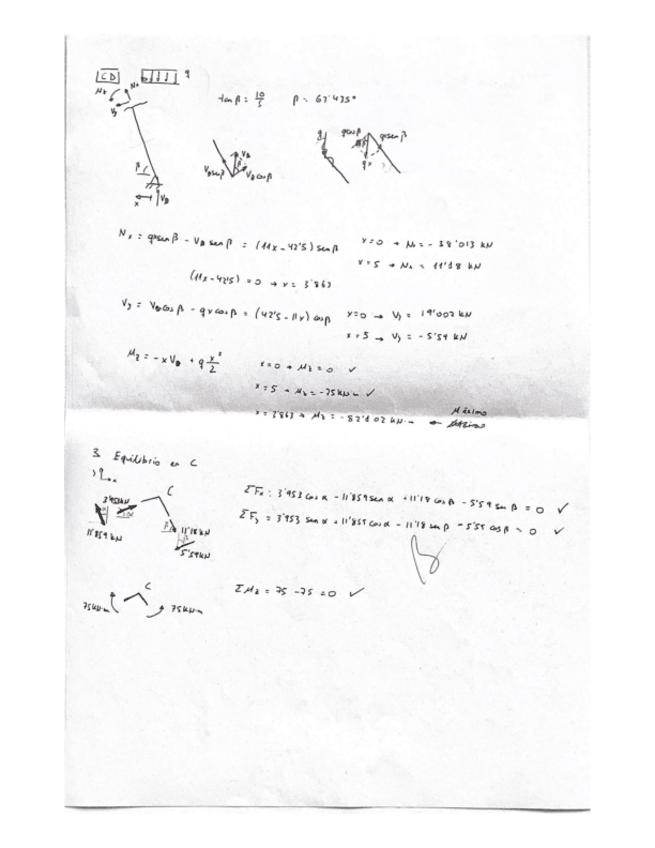 CD q
Nx Nx
Vy
tan β = 10/5 β = 63'435°
β C
x VB
VB sen β VB β VB cos β
q q cos β q x sen β
q x
Nx = qx sen β - VB sen β = (11x - 42'5) sen β x = 0 → Nx = -38'013 kN
x = 5 → Nx = 11'18 kN
(11x - 42'5) = 0 → x = 3'863
Vy = VB cos β - qx cos β = (42'5 - 11x) cos β x = 0 → Vy = 19'007 kN
x = 5 → Vy = -5'59 kN
Mz = -x VB + q x²/2 x = 0 → Mz = 0 ✓
x = 5 → Mz = -75 kN·m ✓
x = 3'863 → Mz = -82'102 kN·m ← Máximo
3. Equilibrio en C
y x
3'953 kN α C
11'859 kN β 11'18 kN
5'59 kN
ΣFx: 3'953 cos α - 11'859 sen α + 11'18 cos β - 5'59 sen β = 0 ✓
ΣFy = 3'953 sen α + 11'859 cos α - 11'18 sen β - 5'59 cos β = 0 ✓
C
75 kN·m 75 kN·m
ΣMz = 75 - 75 = 0 ✓